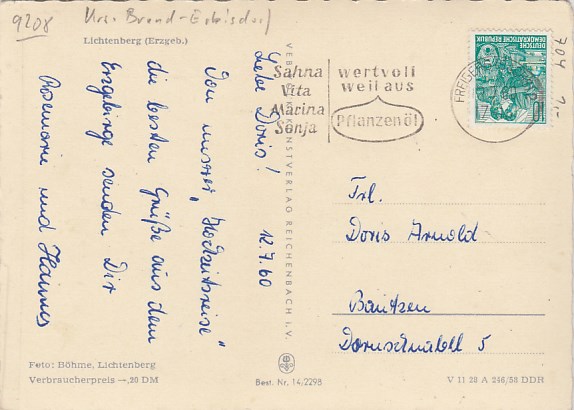 9208 Krs. Brand-Erbisdorf
Lichtenberg (Erzgeb.)
Liebe Doris! 12.7.60
Von unserer „Hochzeitsreise"
die besten Grüße aus dem
Erzgebirge senden Dir
Rosemarie und Hannes
VEB KUNSTVERLAG REICHENBACH I. V.
Sahna
Vita
Marina
Sonja
wertvoll
weil aus
Pflanzenöl
DEUTSCHE
DEMOKRATISCHE REPUBLIK
10
704 1,-
Frl.
Doris Arnold
Bautzen
Dornschuabell 5
Foto: Böhme, Lichtenberg
Verbraucherpreis —,20 DM
Best. Nr. 14/2298
V 11 28 A 246/58 DDR